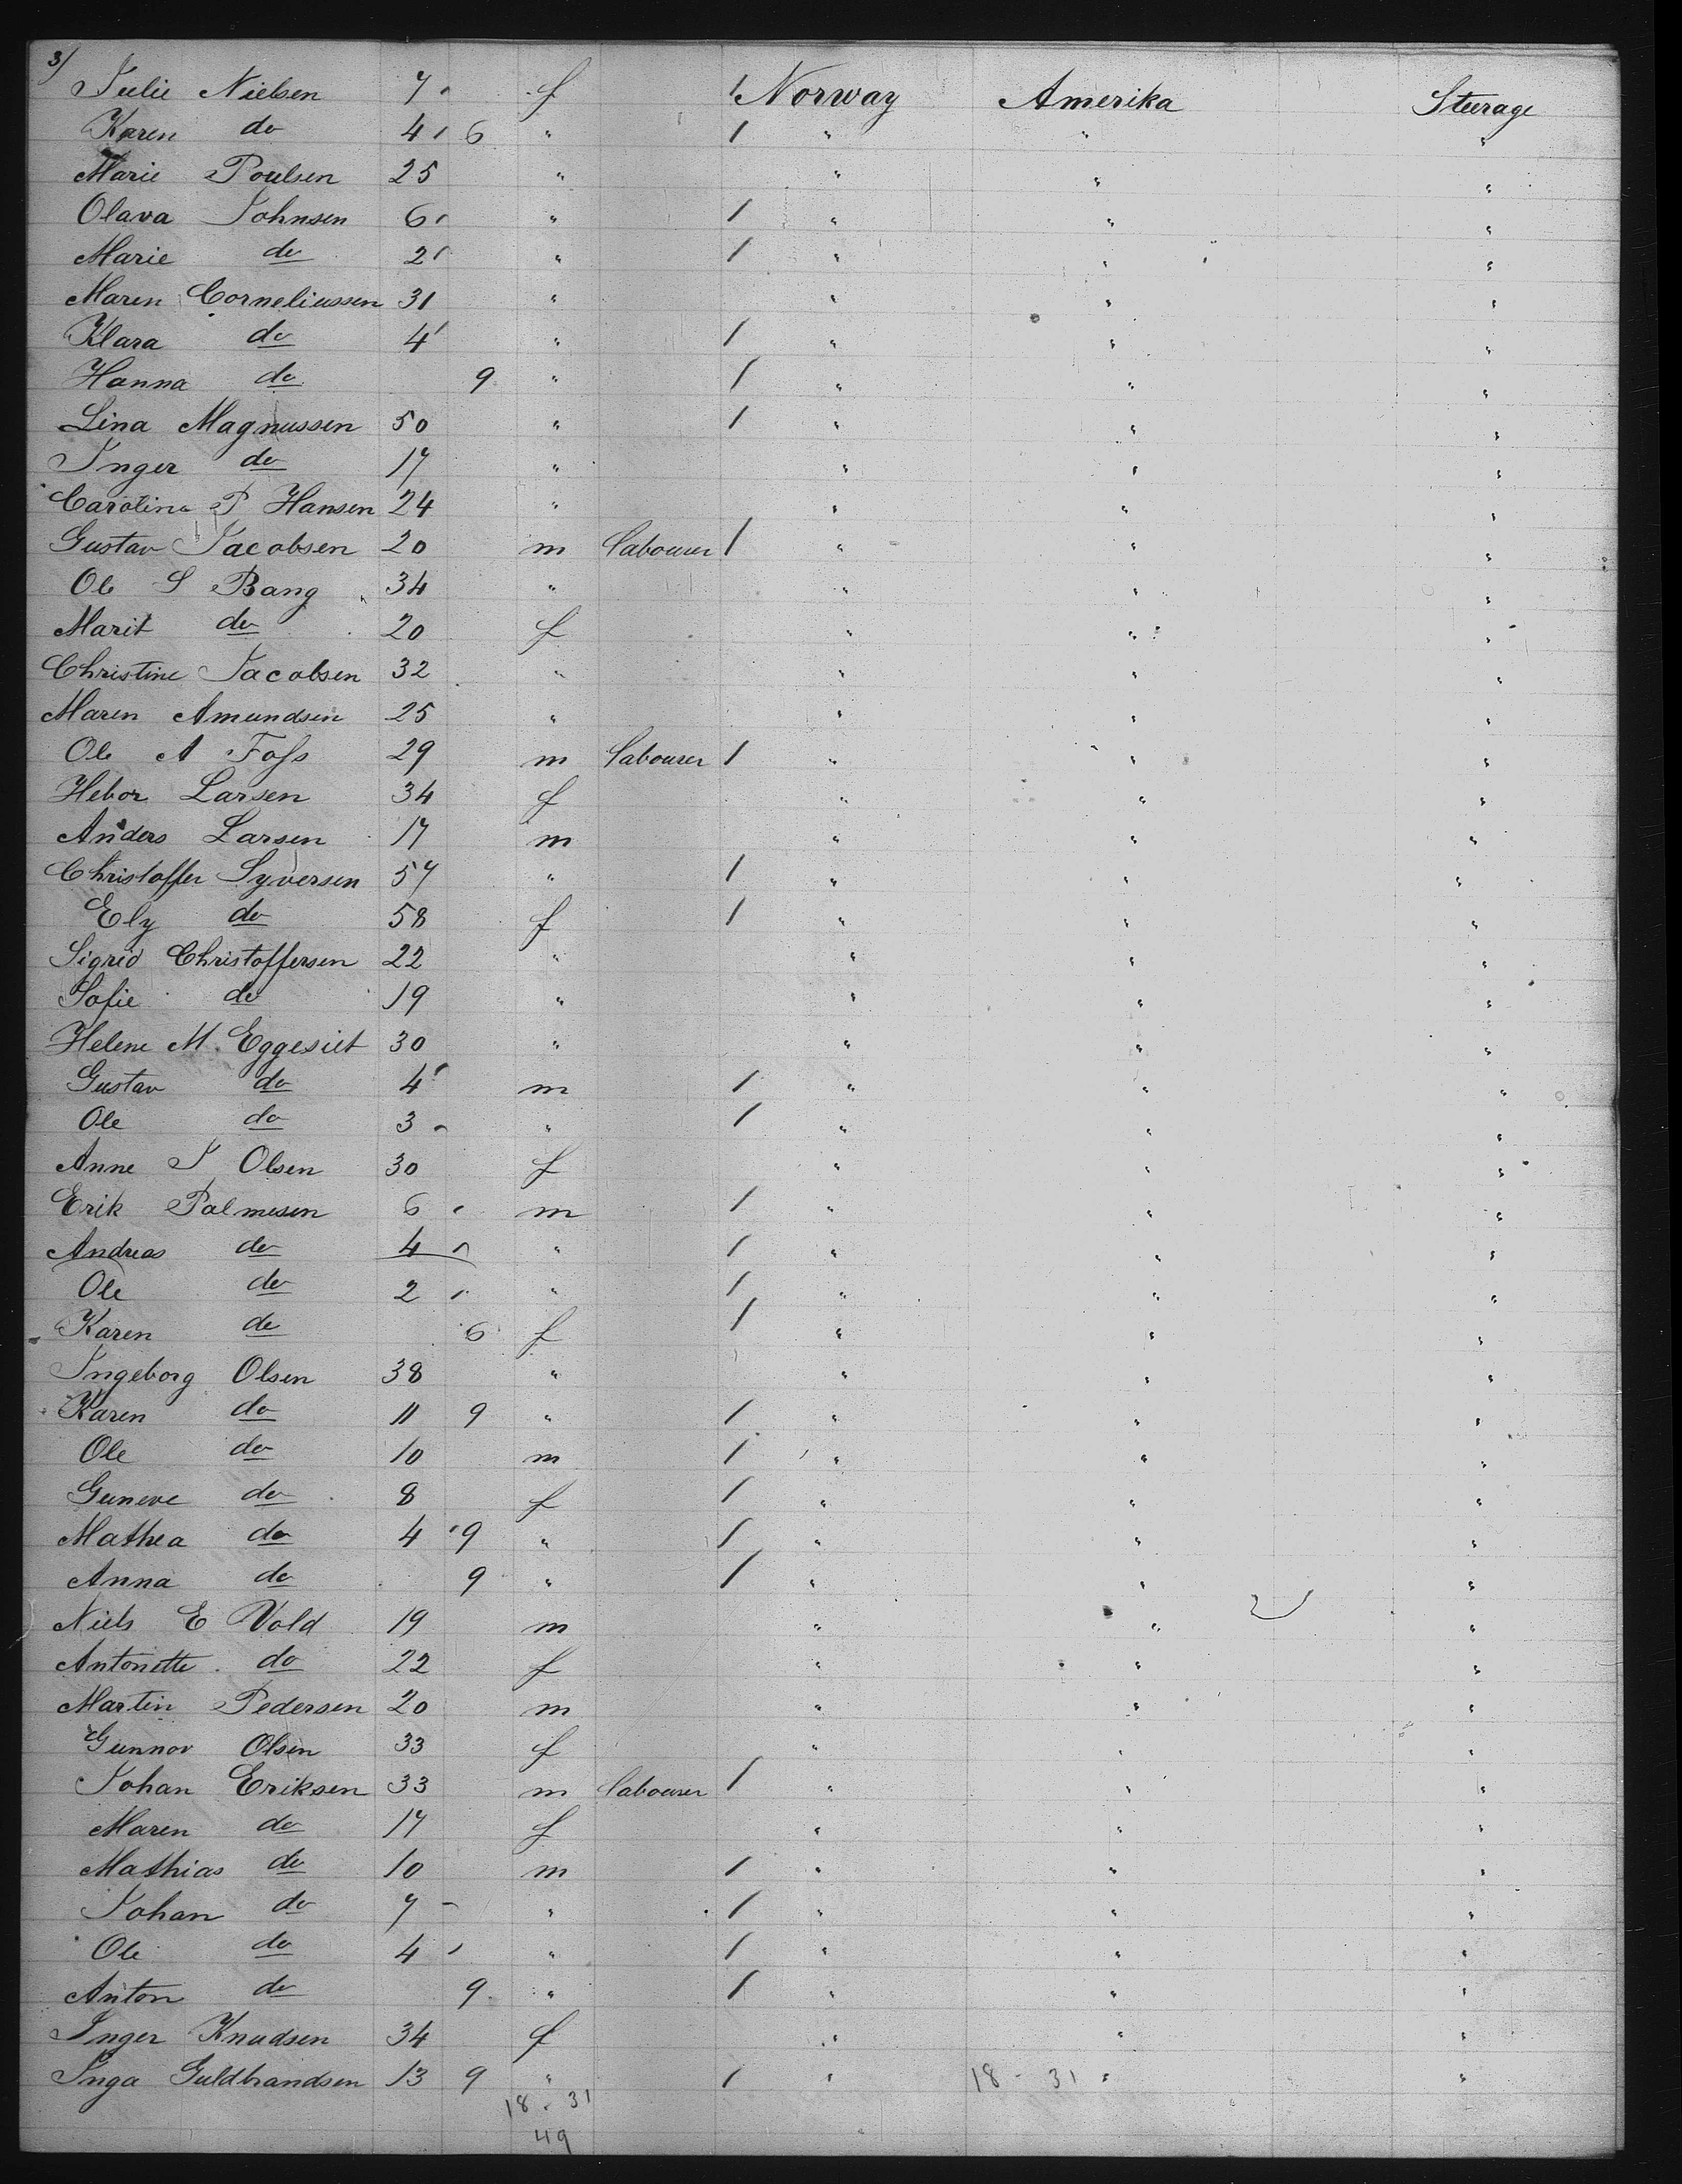 3/
Julie Nielsen 7 f 1 Norway Amerika Steerage
Karen do 4 6 " 1 " " "
Marie Poulsen 25 " " " "
Olava Johnsen 6 " 1 " " "
Marie do 2 " 1 " " "
Maren Corneliussen 31 " " " "
Klara do 4 " 1 " " "
Hanna do 9 " 1 " " "
Lina Magnussen 50 " 1 " " "
Inger do 17 " " " "
Carolina P Hansen 24 " " " "
Gustav Jacobsen 20 m labourer 1 " " "
Ole S Bang 34 " " " "
Marit do 20 f " " "
Christine Jacobsen 32 " " " "
Maren Amundsen 25 " " " "
Ole A Foss 29 m labourer 1 " " "
Hebor Larsen 34 f " " "
Anders Larsen 17 m " " "
Christoffer Syversen 57 " 1 " " "
Ely do 58 f 1 " " "
Sigrid Christoffersen 22 " " " "
Sofie do 19 " " " "
Helene M. Eggesiet 30 " " " "
Gustav do 4 m 1 " " "
Ole do 3 " 1 " " "
Anne J Olsen 30 f " " "
Erik Palmesen 6 m 1 " " "
Andreas do 4 " 1 " " "
Ole do 2 " 1 " " "
Karen do 6 f 1 " " "
Ingeborg Olsen 38 " " " "
Karen do 11 9 " 1 " " "
Ole do 10 m 1 " " "
Guneve do 8 f 1 " " "
Mathea do 4 9 " 1 " " "
Anna do 9 " 1 " " "
Niels E Vold 19 m " " "
Antonette do 22 f " " "
Martin Pedersen 20 m " " "
Gunnor Olsen 33 f " " "
Johan Eriksen 33 m labourer 1 " " "
Maren do 17 f " " "
Mathias do 10 m 1 " " "
Johan do 7 " 1 " " "
Ole do 4 " 1 " " "
Anton do 9 " 1 " " "
Inger Knudsen 34 f " " "
Inga Guldbrandsen 13 9 " 1 " 18 - 31 " "
18 - 31
49